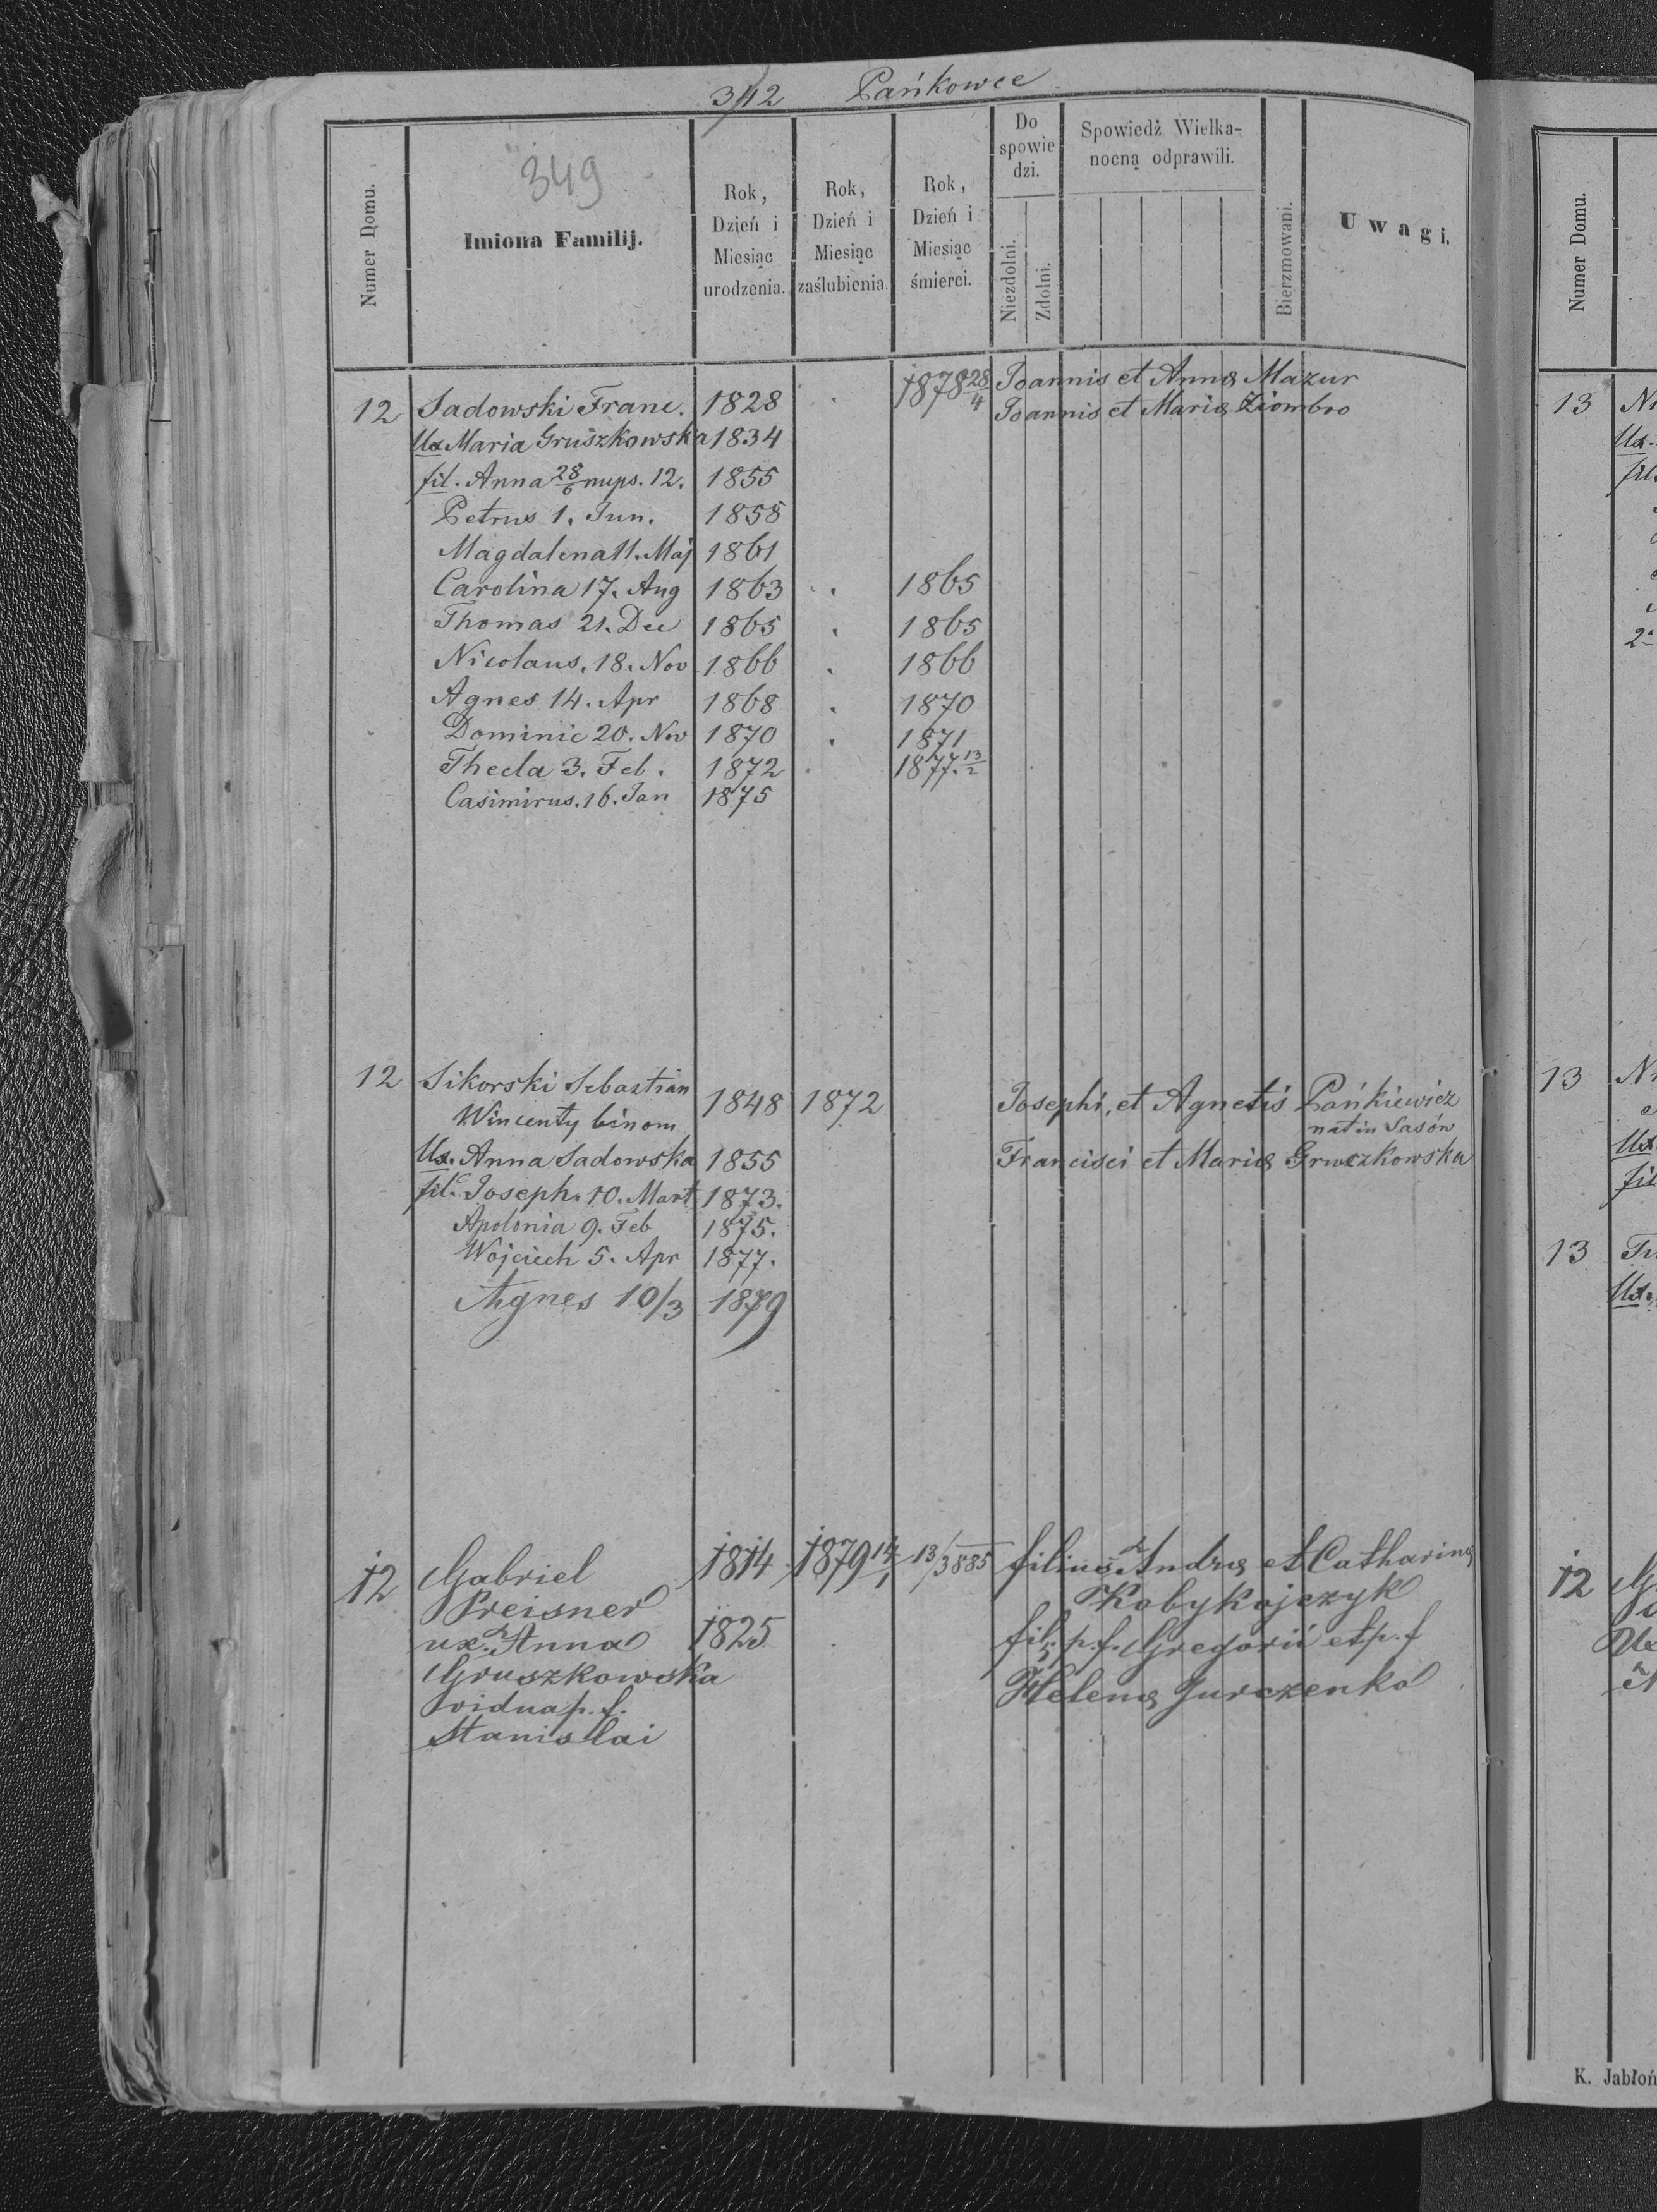 342 Pańkowce
349
Numer Domu.
Imiona Familij.
Rok, Dzień i Miesiąc urodzenia.
Rok, Dzień i Miesiąc zaślubienia.
Rok, Dzień i Miesiąc śmierci.
Do spowiedzi.
Niezdolni.
Zdolni.
Spowiedź Wielkanocną odprawili.
Bierzmowani.
Uwagi.
12 Sadowski Franc. 1828 1878 28/4 Joannis et Annæ Mazur
Ux. Maria Gruszkowska 1834 Joannis et Mariæ Ziombro
fil. Anna 28/6 nups. 12. 1855
Petrus 1. Jun. 1858
Magdalena 11. Maj 1861
Carolina 17. Aug 1863 1865
Thomas 21. Dec 1865 1865
Nicolaus. 18. Nov 1866 1866
Agnes 14. Apr 1868 1870
Dominic 20. Nov 1870 1871
Thecla 3. Feb. 1872 1877. 13/2
Casimirus. 16. Jan 1875
12 Sikorski Sebastian
Wincenty binom 1848 1872 Josephi, et Agnetis Pańkiewicz
nat in Sasów
Ux. Anna Sadowska 1855 Francisci et Mariæ Gruszkowska
fil. Joseph. 10. Mart 1873.
Apolonia 9. Feb 1875.
Wojciech 5. Apr 1877.
Agnes 10/3 1879
12 Gabriel 1814 1879 14/1 13/3 885 filius Andreæ et Catharinæ
Preisner Kobykojczyk
ux. Anna 1825 fil. p.f. Gregorii et p.f
Gruszkowska Helenæ Jurczenko
vidua p.f.
Stanislai
13
13
13
12
Numer Domu.
Ux.
fil.
Ux.
fil
Ux.
K. Jabłoń